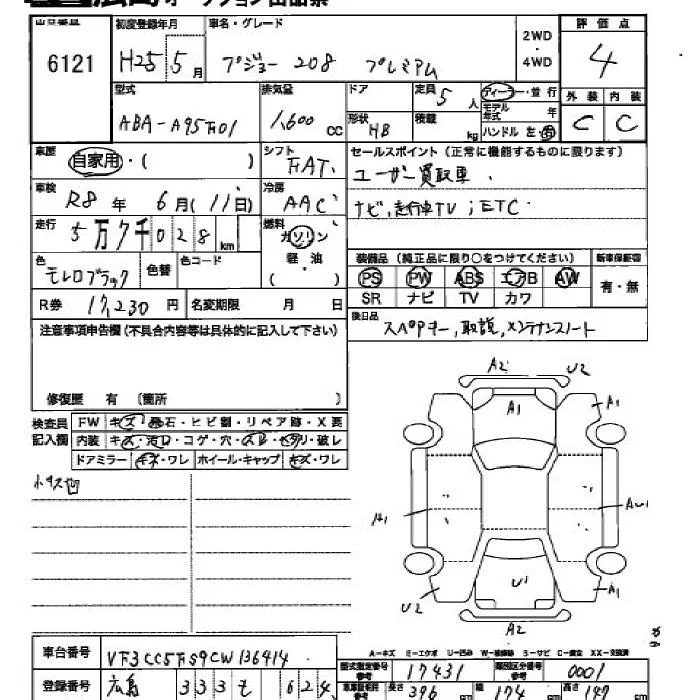 オークション出品票
出品番号 初度登録年月 車名・グレード 2WD・4WD 評価点
6121 H25 5月 プジョー 208 プレミアム 4
型式 排気量 ドア 定員 5人 ディーラー・並行 外装 内装
ABA-A95F01 1,600 CC 形状 HB 積載 kg モデル年式 年 ハンドル 左・右 C C
車歴 自家用・( ) シフト FAT セールスポイント(正常に機能するものに限ります)
ユーザー買取車.
車検 R8年 6月(11日) 冷房 AAC
ナビ,走行車TV ; ETC
走行 5万7千028km 燃料 ガソリン 軽油 ( )
色 モレロブラック 色替 色コード
装備品(純正品に限り○をつけてください) 新車保証書
PS PW ABS エアB AW 有・無
SR ナビ TV カワ
R券 17,230円 名変期限 月 日
後日品 スペアキー,取説,メンテナンスノート
注意事項申告欄(不具合内容等は具体的に記入して下さい)
修復歴 有 〔箇所 〕
検査員記入欄
FW キズ・飛石・ヒビ割・リペア跡・X要
内装 キズ・汚れ・コゲ・穴・スレ・ヘタリ・破レ
ドアミラー キズ・ワレ ホイール・キャップ キズ・ワレ
A2 U2
A1 A1
A1 AU1
U1
U2 A1
A2
A-キズ E-エクボ U-凹み W-補修跡 S-サビ C-腐食 XX-交換済
車台番号 VF3CC5FS9CW136414
型式指定番号 17431 類別区分番号 0001
登録番号 広島 333 も 624
長さ 396 cm 幅 174 cm 高さ 147 cm